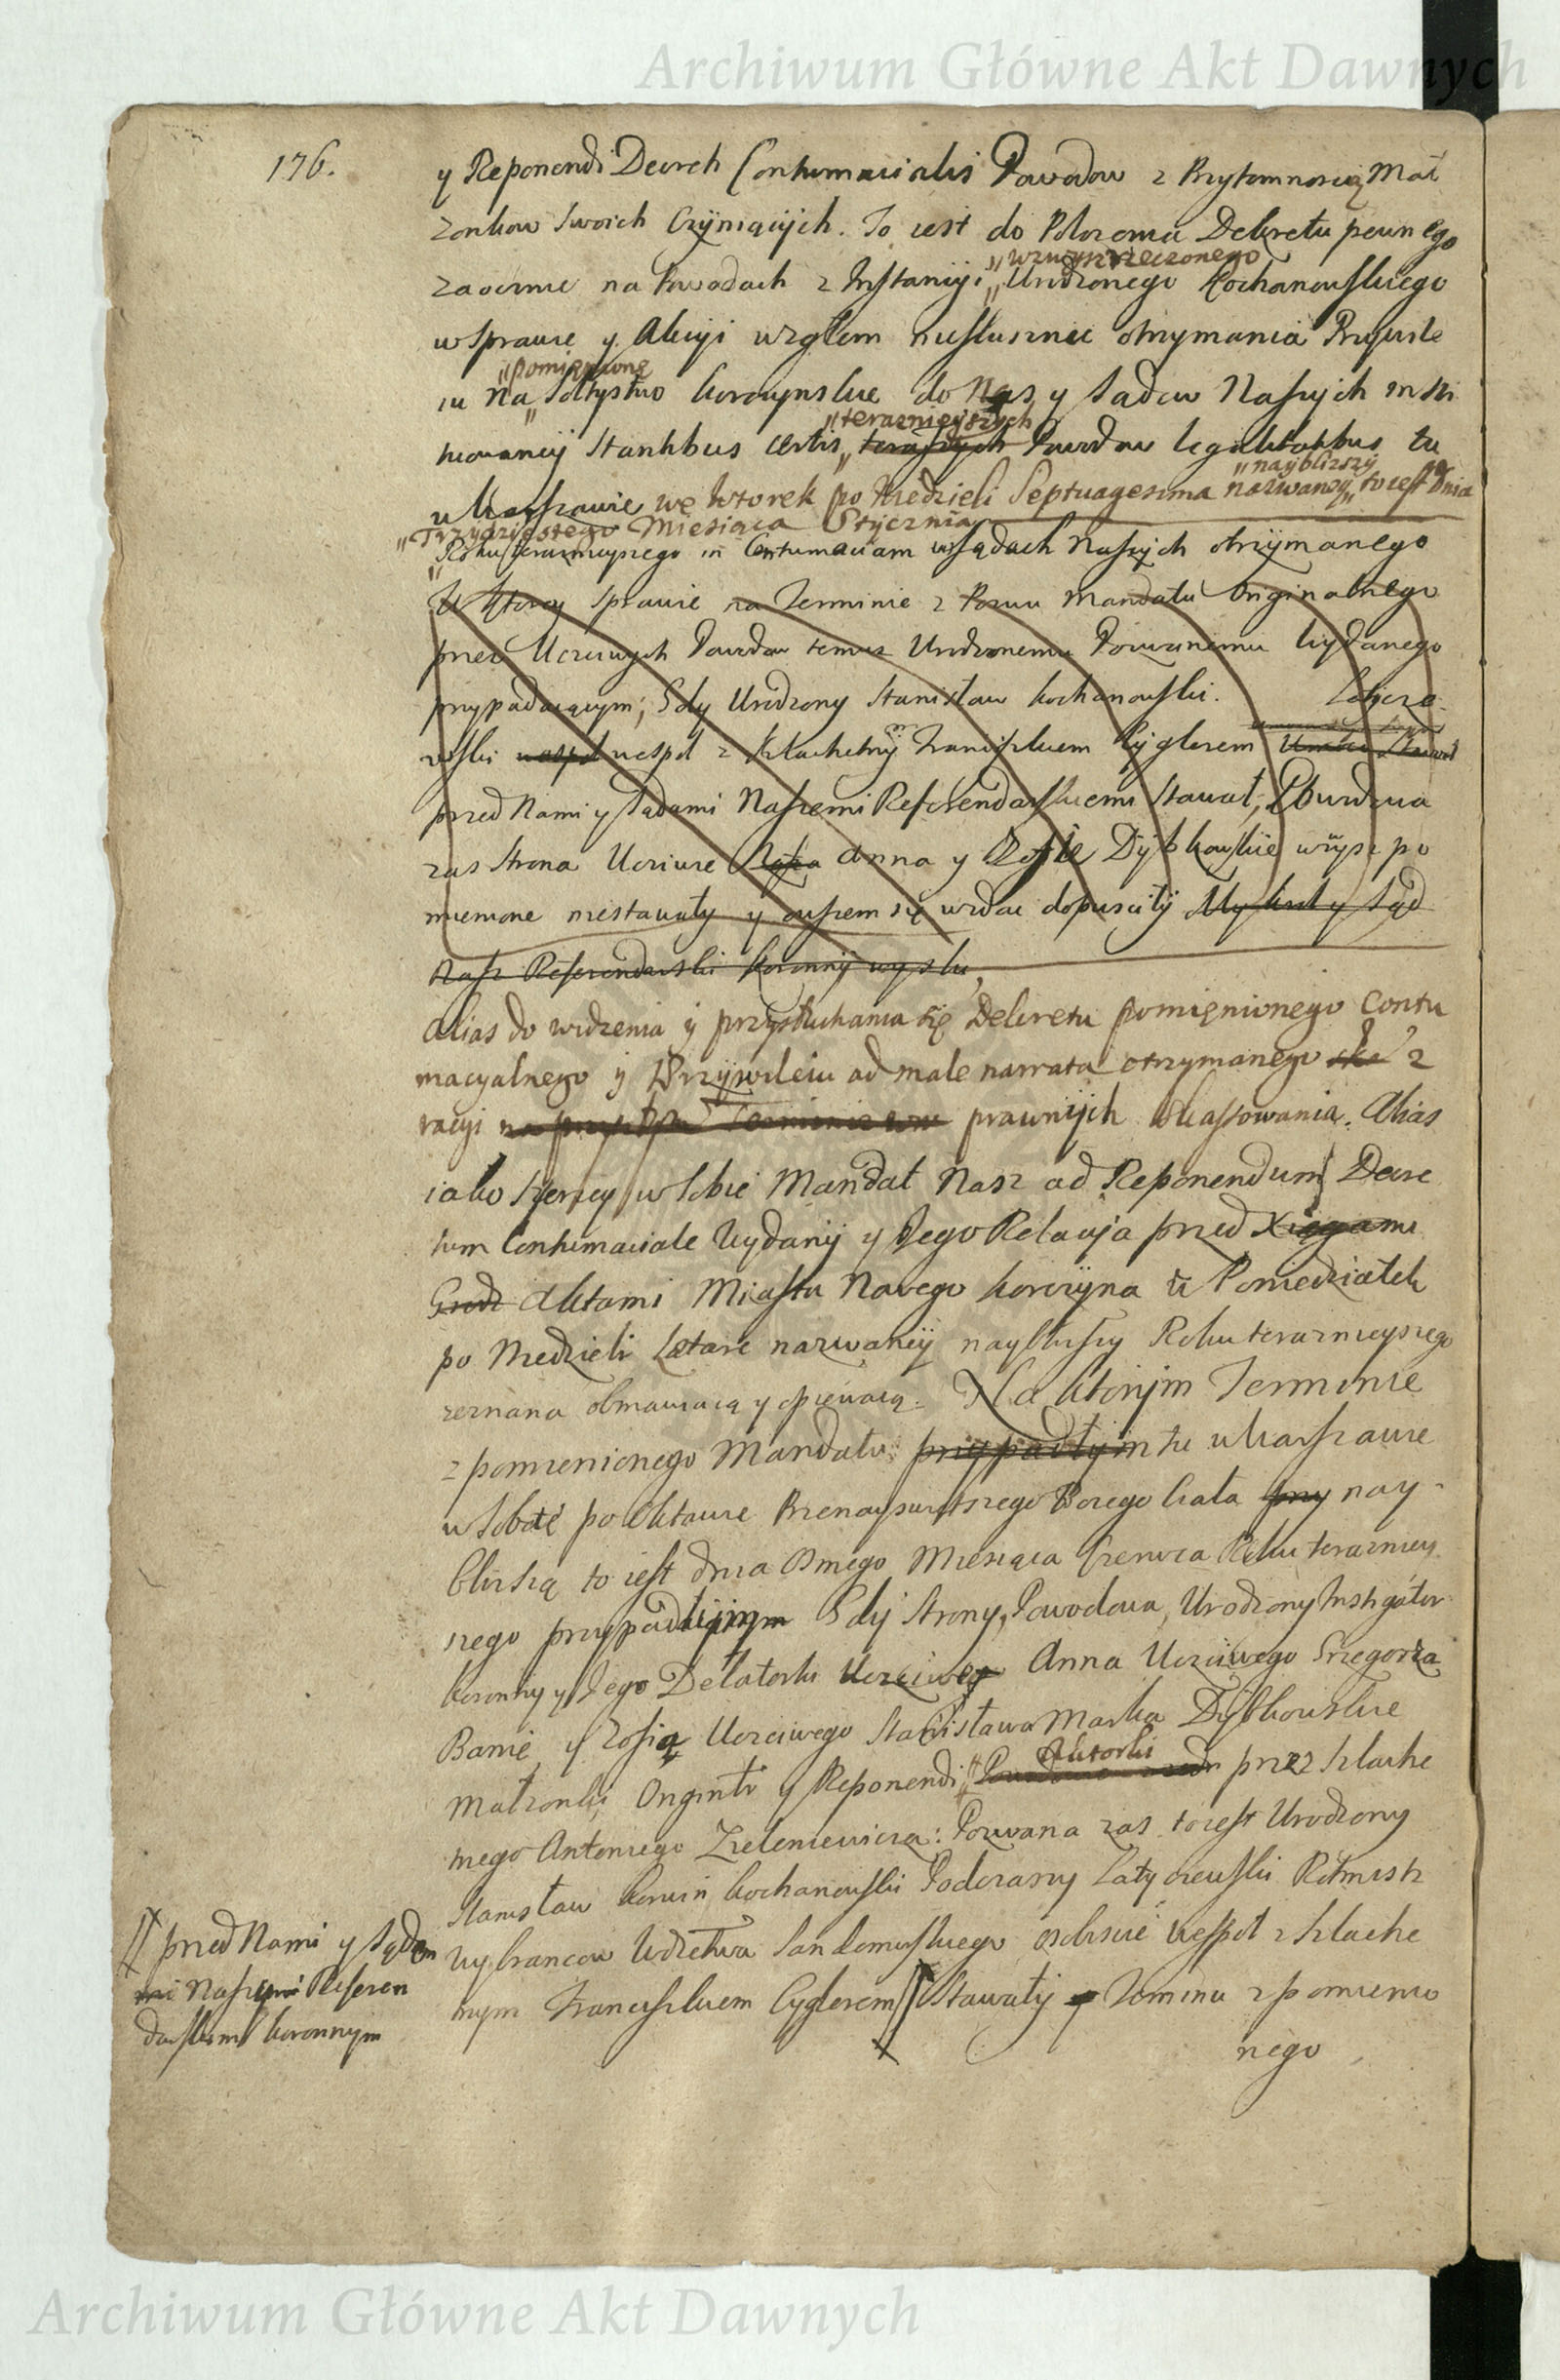 Archiwum Główne Akt Dawnych
176.
y Reponendi Decreti Contumacialis Powodow z Przytomnoscią Mał
zonkow Swoich Czyniących. To iest do Polozenia Dekretu pewnego
„wzwyszrzeczonego
zaocznie na Powodach z Instancyi „Urodzonego Kochanowskiego
w Sprawie y Akcyi wzglem niesłusznie otrzymania Przywile
„pomięnione
iu na „Sołtystwo Korczynskie do Nas y Sadow Naszych
„teraznieyszych
Stantibus certis „teraszych Powodow legalitatibus tu
„naybliższy
w Warszawie we Wtorek po Niedzieli Septuagesima nazwaney „to iest Dnia
„Trzydziestego Miesiąca Stycznia
„Roku teraznieyszego in Contumaciam w Sądach Naszych otrzymanego
W Ktorey Sprawie na Terminie z Pozwu Mandatu Originalnego
przez Uczciwych Powodow temuz Urodzonemu Pozwanemu Wydanego
przypadaiącym; Gdy Urodzony Stanisław Kochanowski. Latycze
wski wespol wespol z Szlachetnym Franciszkiem Cyglerem
przed Nami y Sądami Naszemi Referendarskiemi Stawał, Powodowa
zas Strona Uczciwe Zofia Anna y Zofie Dybkowskie wysz po
mienione niestawały y owszem się wzdac dopusciły My Krol y Sąd
Nasz Referendarski Koronny wysłu
Alias do widzenia y przysłuchania się Dekretu pomięnionego Contu
macyalnego y Przywileiu ad male narrata otrzymanego z
racyi na Terminie prawnych Skassowania. Alias
iako szerzey w Sobie Mandat Nasz ad Reponendum Decre
tum Contumaciale Wydany y Jego Relacyja przed Xięgami
Grodz Aktami Miasta Nowego Korczyna w Poniedziałek
po Niedzieli Lætare nazwaney naybliższy Roku teraznieyszego
zeznana obmawiaią y opiewaią. Na ktorym Terminie
z pomienionego Mandatu przypadłym tu w Warszawie
w Sobotę po Oktawie Przenayswiętszego Bozego Ciała przy nay-
bliższą to iest dnia Osmego Miesiąca Czerwca Roku teraznieyszego
szego przypadłym Gdy Strony, Powodowa, Urodzony Instigator
Koronny y Jego Delatorki Uczciwey Anna Uczciwego Grzegorza
Banie y Zofią Uczciwego Stanisława Marka Dybkowskie
Aktorki
Małzonki Originti y Reponendi przez Szlache
tnego Antoniego Zieleniewicza: Pozwana zas to iest Urodzony
Stanisław Korwin Kochanowski Podczaszy Latyczewski Rotmistrz
Wybrancow Wdztwa Sandomirskiego osobiscie wespol z Szlache
tnym Franciszkiem Cyglerem // Stawały y Terminu z pomienio
nego
// przed Nami y Sądem
mi Naszymi Referen
darskiemi Koronnym
Archiwum Główne Akt Dawnych